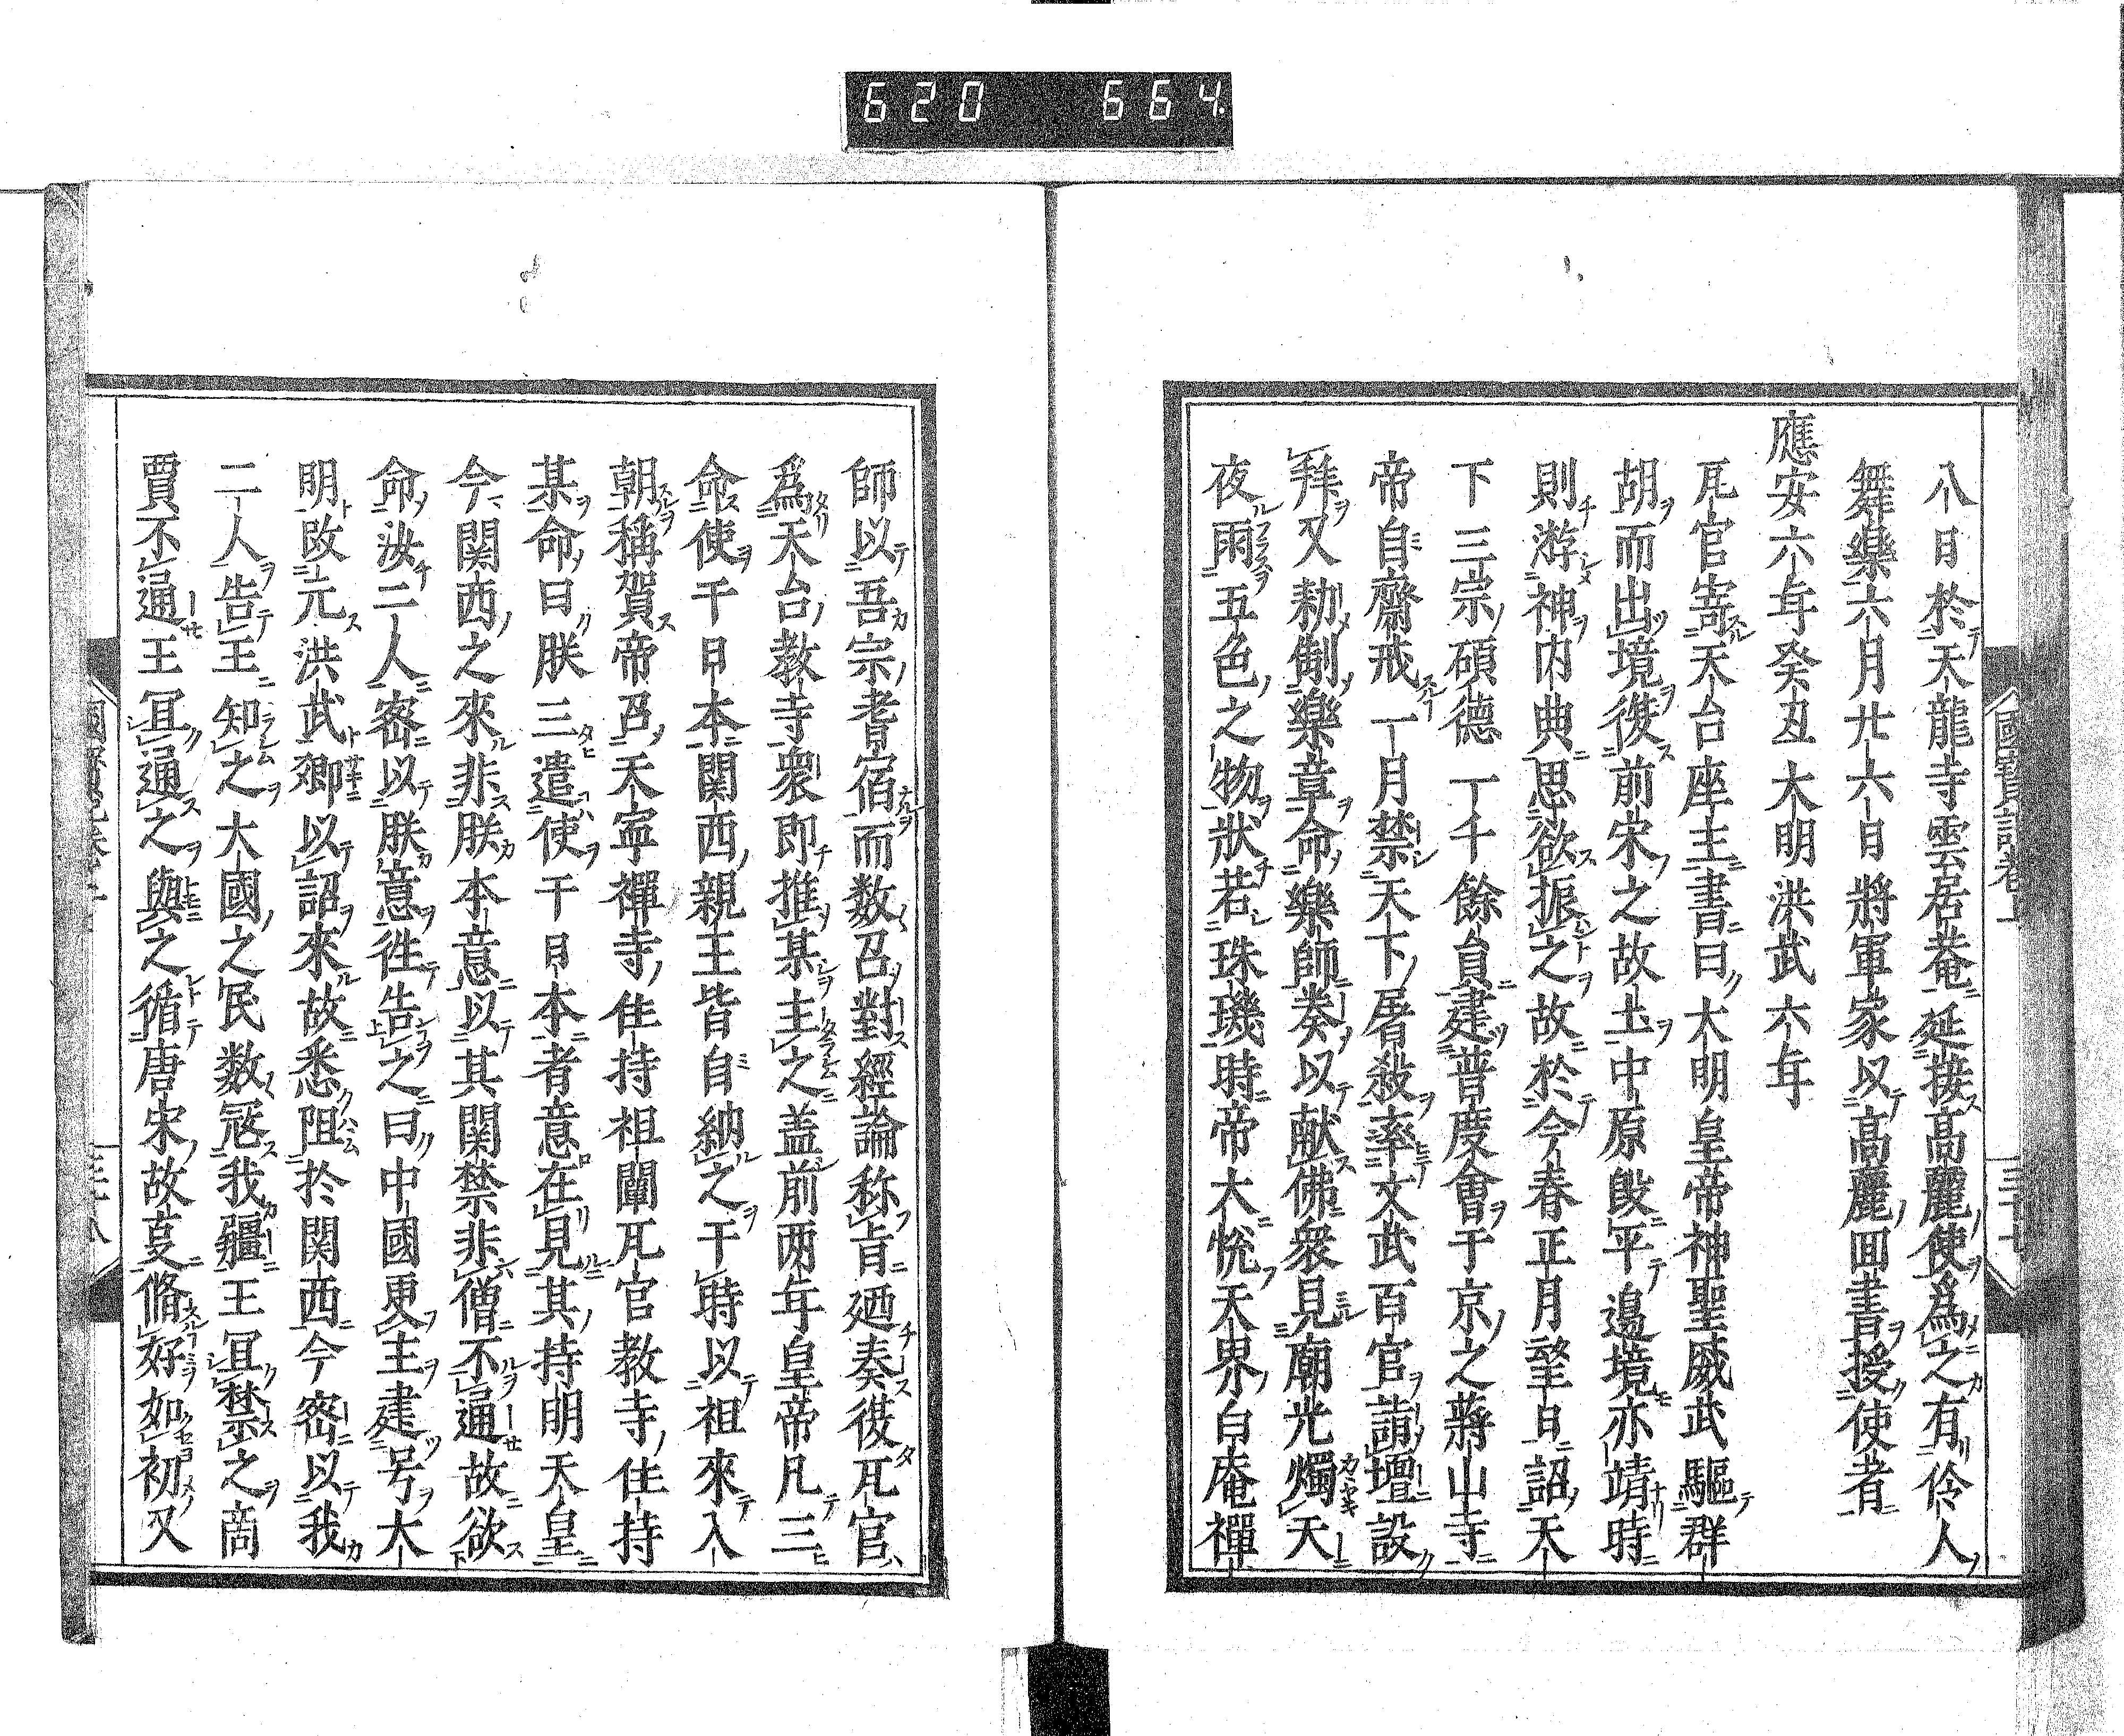 620 664.
八日於天龍寺雲居菴延接高麗使爲之有伶人
舞樂六月廿六日將軍家以高麗回書授使者
應安六年癸丑大明洪武六年
瓦官寄天台座主書曰大明皇帝神聖威武驅群
胡而出境復前宋之故土中原旣平邉境亦靖時
則游神内典思欲振之故於今春正月望日詔天
下三宗碩德一千餘員建普度會于京之蔣山寺
帝自齋戒一月禁天下屠殺率文武百官請壇設
拜又勑制樂章命樂師奏以献佛衆見廟光燭天
夜雨五色之物状若珠璣時帝大悦天界白庵禪
國寶記卷上
三十七
師以吾宗耆宿而数召對經論称旨廼奏復瓦官
爲天台教寺衆即推某主之盖前两年皇帝凡三
命使于日本関西親王皆自納之于時以祖來入
朝稱賀帝召天寧禪寺住持祖闡瓦官教寺住持
某命曰朕三遣使于日本者意在見其持明天皇
今関西之來非朕本意以其関禁非僧不通故欲
命汝二人密以朕意徃告之曰中國更主建号大
明改元洪武郷以詔來故悉阻於関西今密以我
二人告王知之大國之民数寇我疆王冝禁之啇
賈不通王冝通之與之循唐宋故叓脩好如初又
三十八